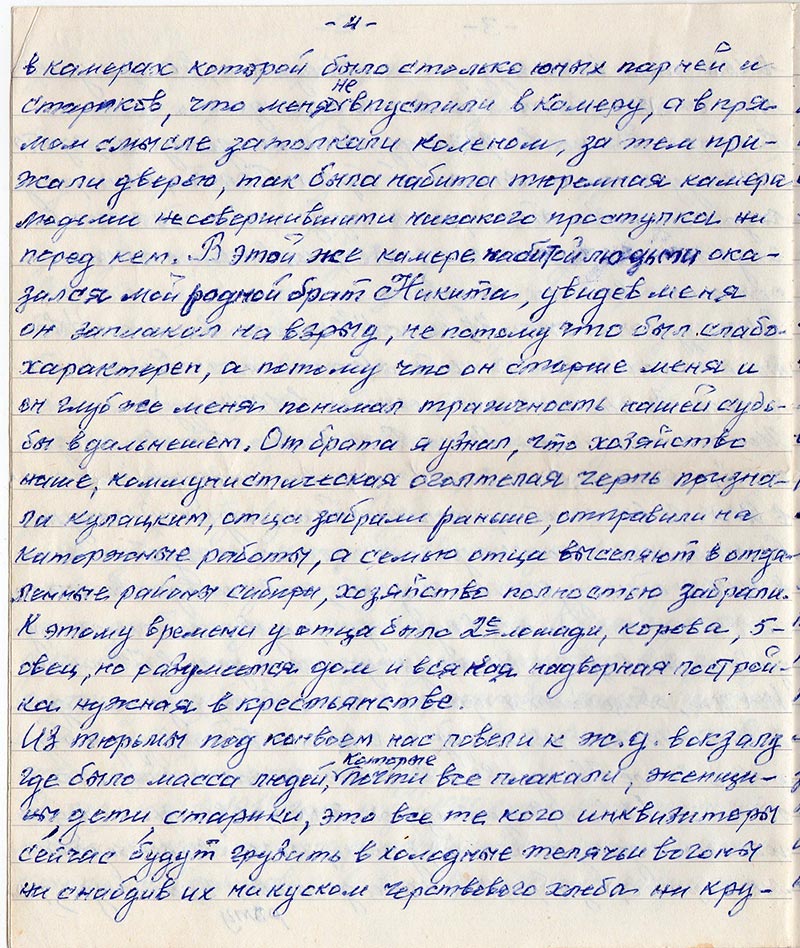 -4-
в камерах которой было столько юных парней и
стариков, что меня не впустили в камеру, а в пря-
мом смысле затолкали коленом, за тем при-
жали дверью, так была набита тюремная камера
людьми несовершившими никакого проступка ни
перед кем. В этой же камере набитой людьми ока-
зался мой родной брат Никита, увидев меня
он заплакал на взрыд, не потому что был слабо-
характерен, а потому что он старше меня и
он глубже меня понимал трагичность нашей судь-
бы вдальнешем. От брата я узнал, что хозяйство
наше, коммунистическая оголтелая чернь призна-
ла кулацким, отца забрали раньше, отправили на
каторжные работы, а семью отца выселяют в отда-
ленные районы сибири, хозяйство полностью забрали.
К этому времени у отца было 2е лошади, корова, 5-
овец, но разумеется дом и вся надворная построй-
ка нужная в крестьянстве.
Из тюрьмы под конвоем нас повели к ж.д. вокзалу
где было масса людей, которые почти все плакали, женщи-
ны дети старики, это все те кого инквизитеры
сейчас будут грузить в холодные телячьи вогоны
ни снабдив их ни куском черствого хлеба ни кру-